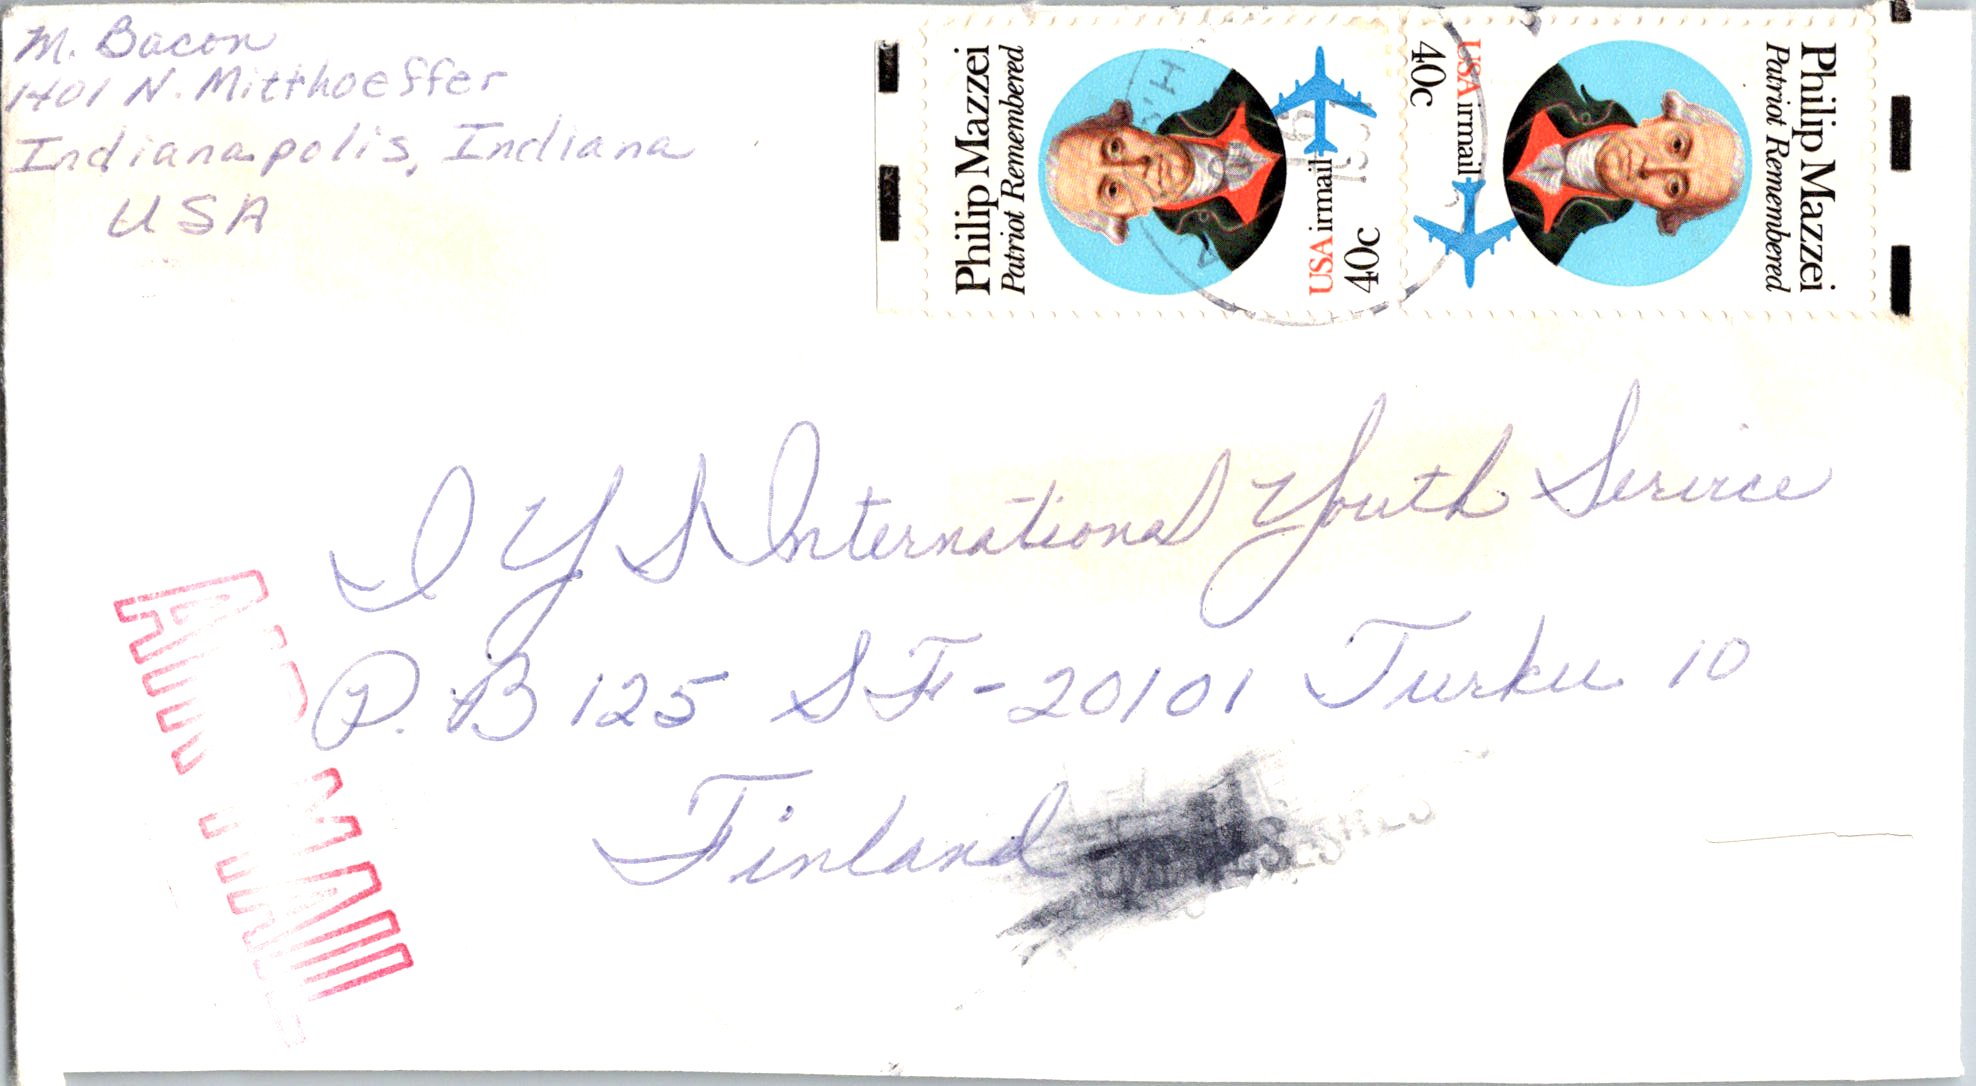 M. Bacon
1401 N. Mitthoeffer
Indianapolis, Indiana
USA
Philip Mazzei
Patriot Remembered
USA irmail
40c
Philip Mazzei
Patriot Remembered
USA irmail
40c
I Y S International Youth Service
P.B 125 SF-20101 Turku 10
Finland
AIR MAIL